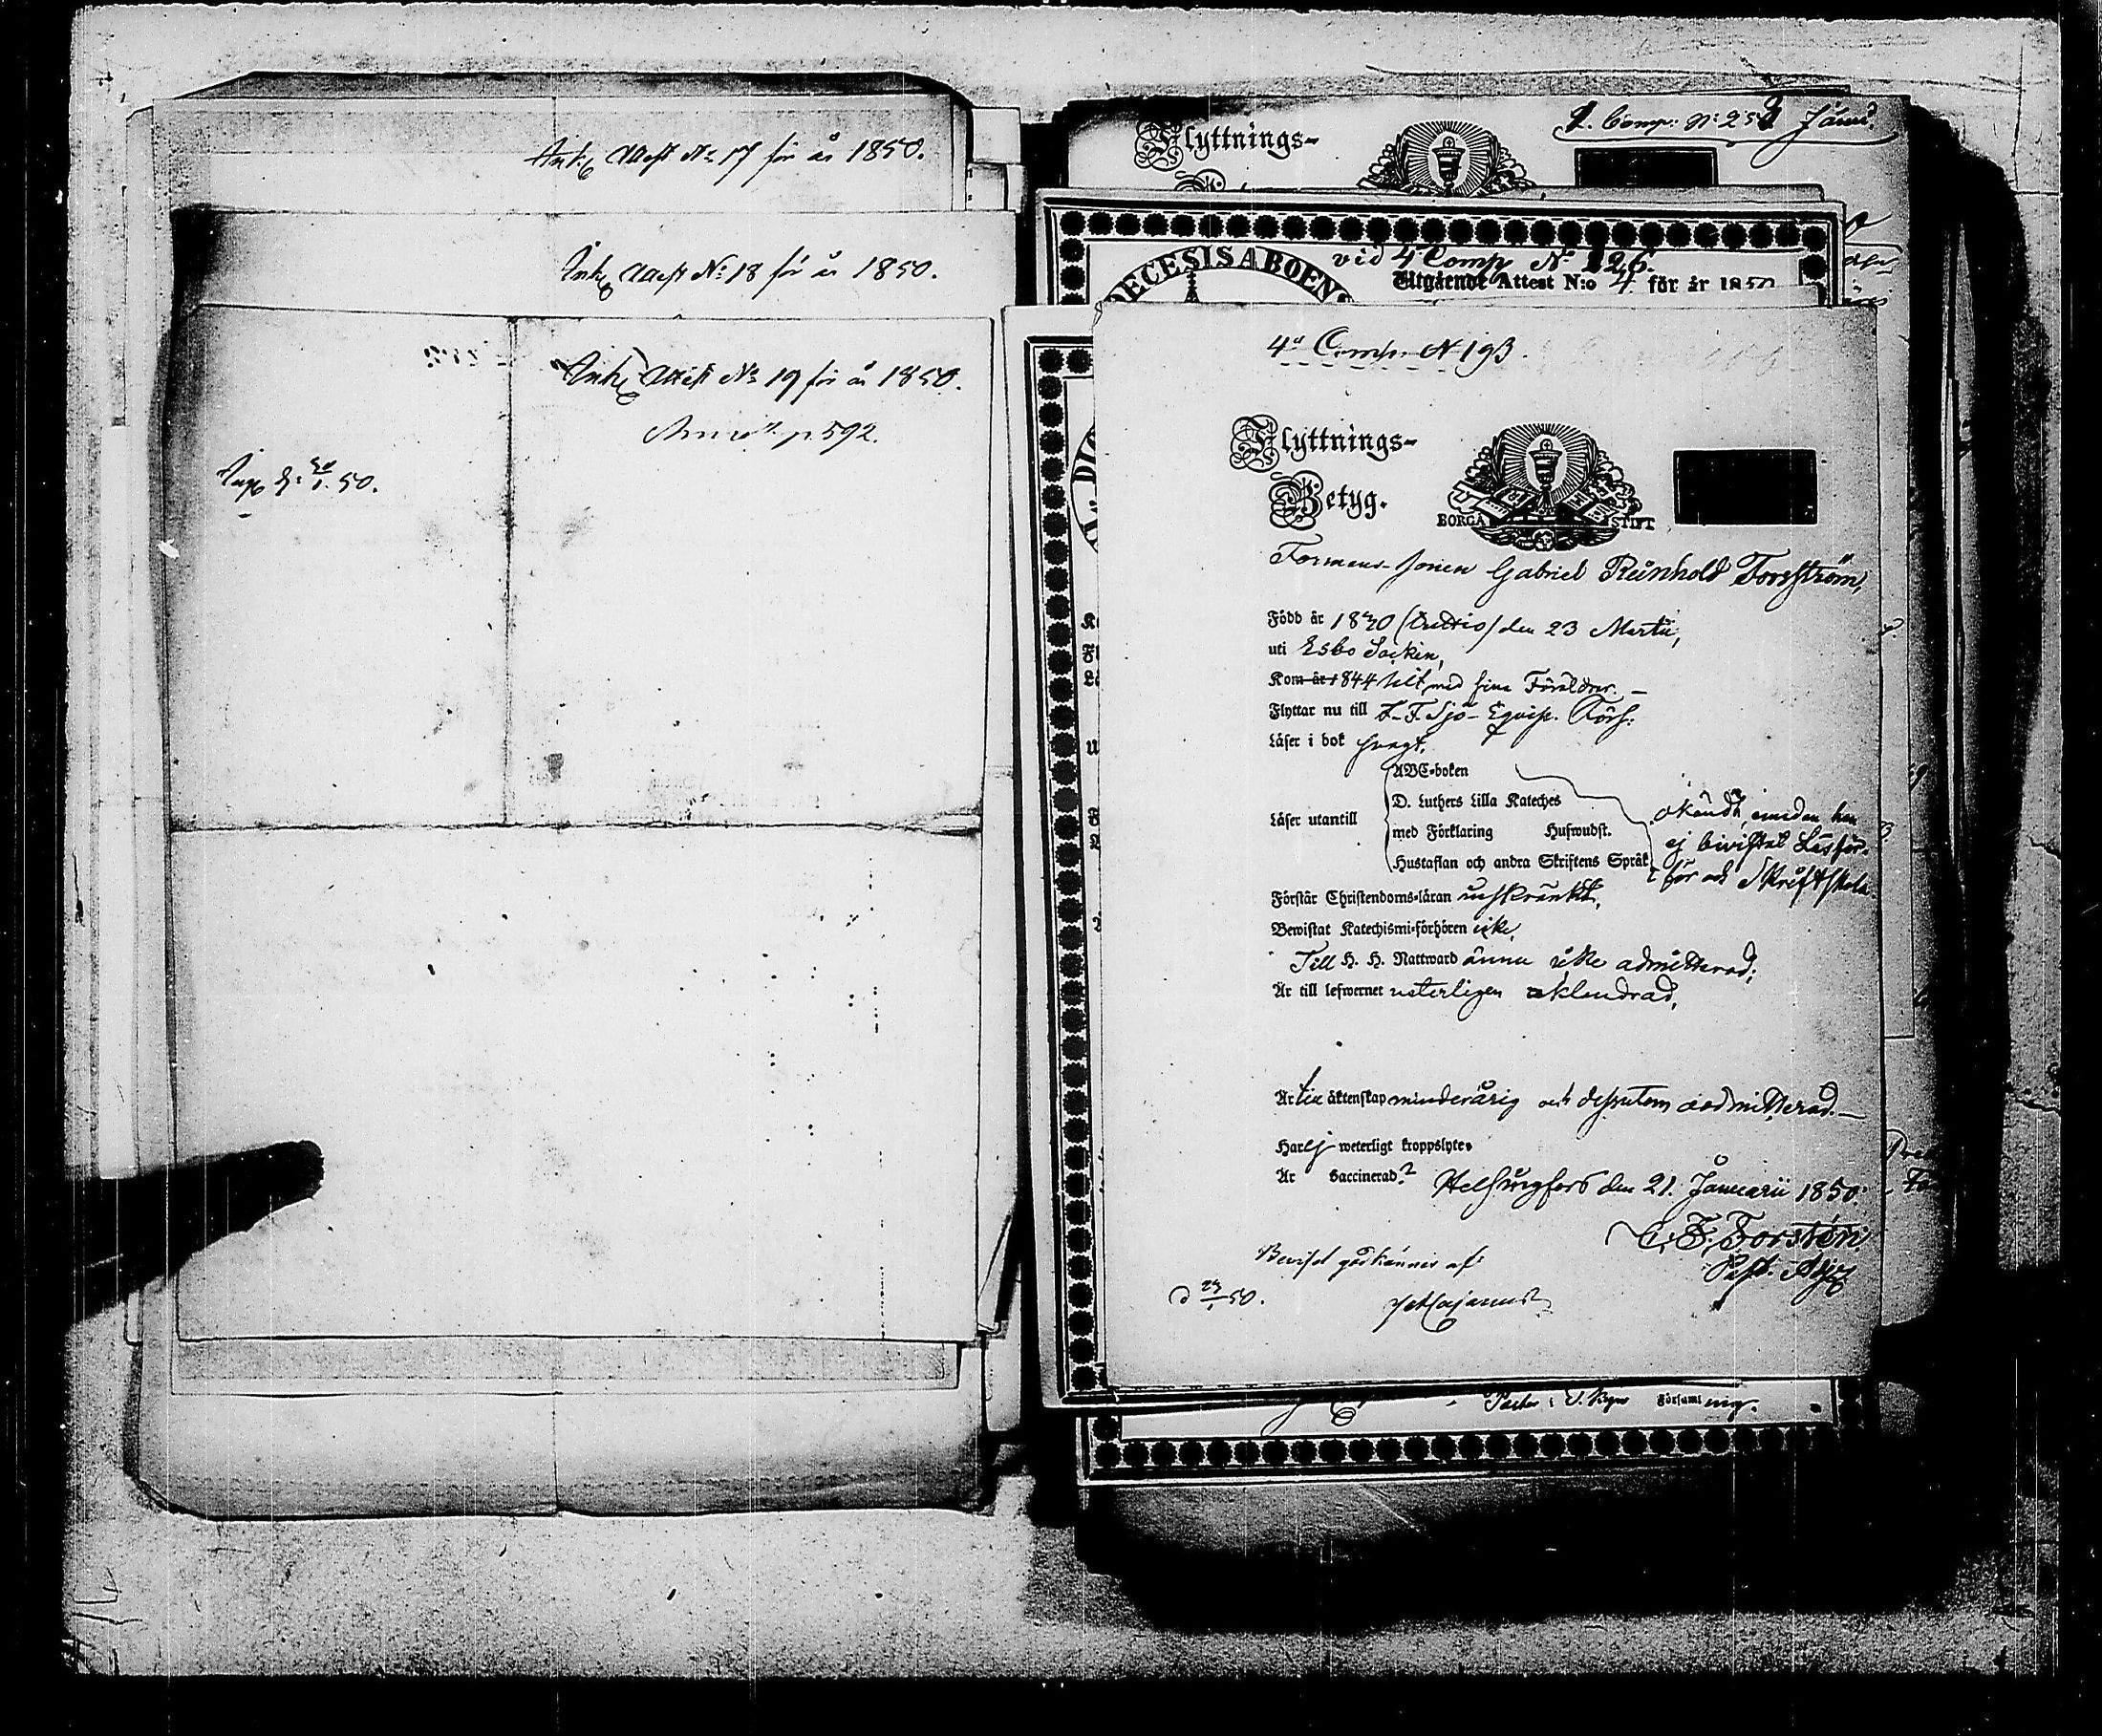 Ank. Attest No 17 för år 1850.
Ank. Attest No: 18 för år 1850.
Ank. Attest No 19 för år 1850.
p. 592.
50.
Flyttnings-
Comp: No: 25
DIOECESIS ABOENS
vid 4 Comp No 126.
Utgående Attest N:o 4 för år 1850
4de Comp. N 193.
Flyttnings-
Betyg.
BORGÅ STIFT
Formans-sonen Gabriel Reinhold Forsström,
Född år 1830 (trettio) den 23 Martii,
uti Esbo Socken,
Kom år 1844 hit med sina Föräldrar. —
Flyttar nu till S. F. Sjö-Equip. Förs:
Läser i bok svagt,
ABC-boken
D. Luthers Lilla Kateches
Läser utantill
med Förklaring Hufwudst.
Hustaflan och andra Skriftens Språk
okändt, emedan han
ej bevistat Läsför-
hör och Skriftskola.
Förstår Christendoms-läran inskränkt,
Bewistat Katechismi-förhören icke,
Till H. H. Nattward ännu icke admitterad;
Är till lefwernet veterligen oklandrad,
Är till äktenskap minderårig och dessutom oadmitterad. —
Har ej weterligt kroppslyte.
Är vaccinerad?
Helsingfors den 21. Januarii 1850.
C. F. Forstén
Past. Adj.
Beviset godkännes af:
d 23/1 50.
Cajanus
Pastor i Församl ing.